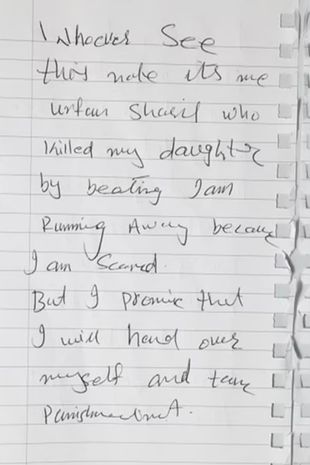 Whoever See
this note its me
urfan Sharif who
killed my daughter
by beating I am
Running Away because
I am Scared.
But I promise that
I will hand over
myself and take
Punishment.